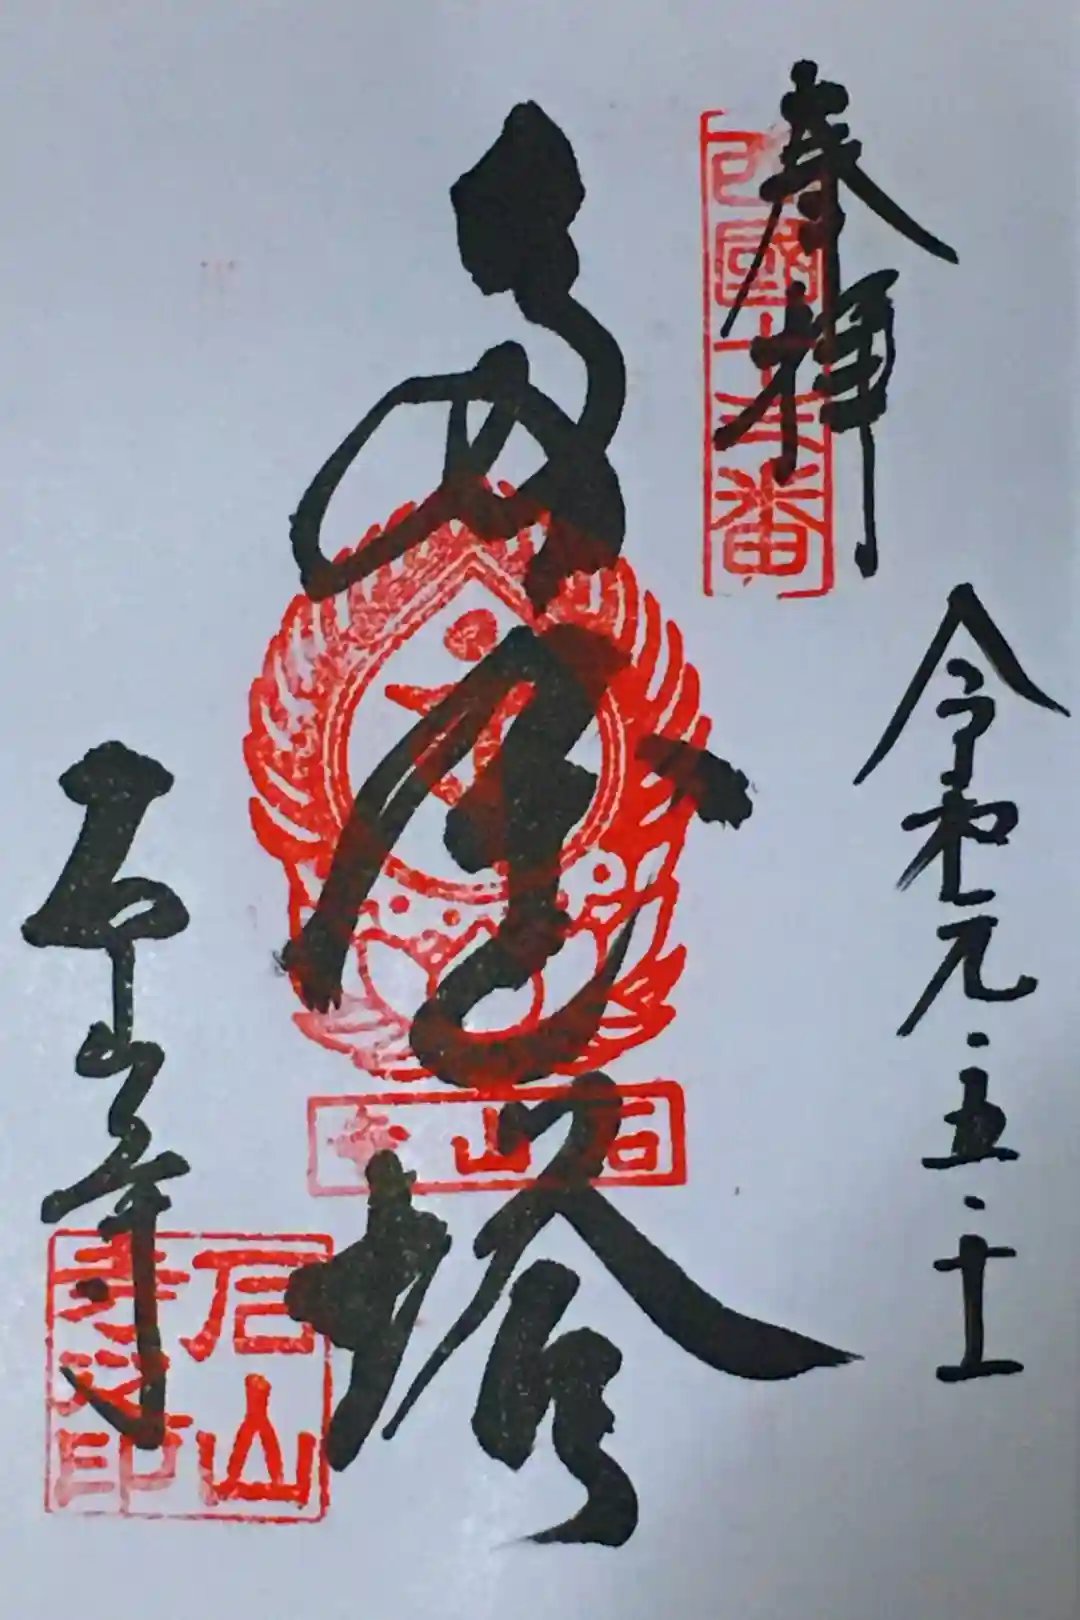 奉拝
西國十三番
令和元・五・十一
多宝塔
石山寺
石山寺
石山